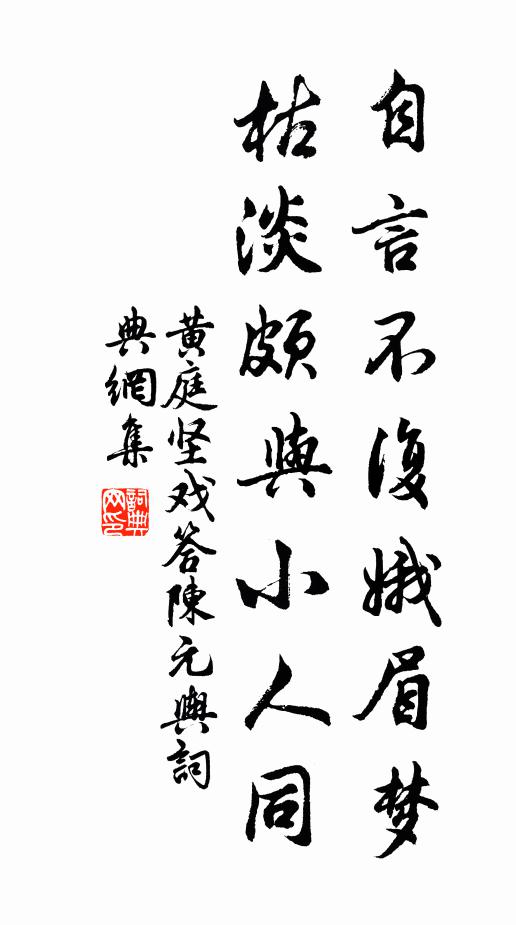 自言不復娥眉梦
枯淡颇與小人同
黄庭坚戏答陳元輿詞
典網集
詞典网印